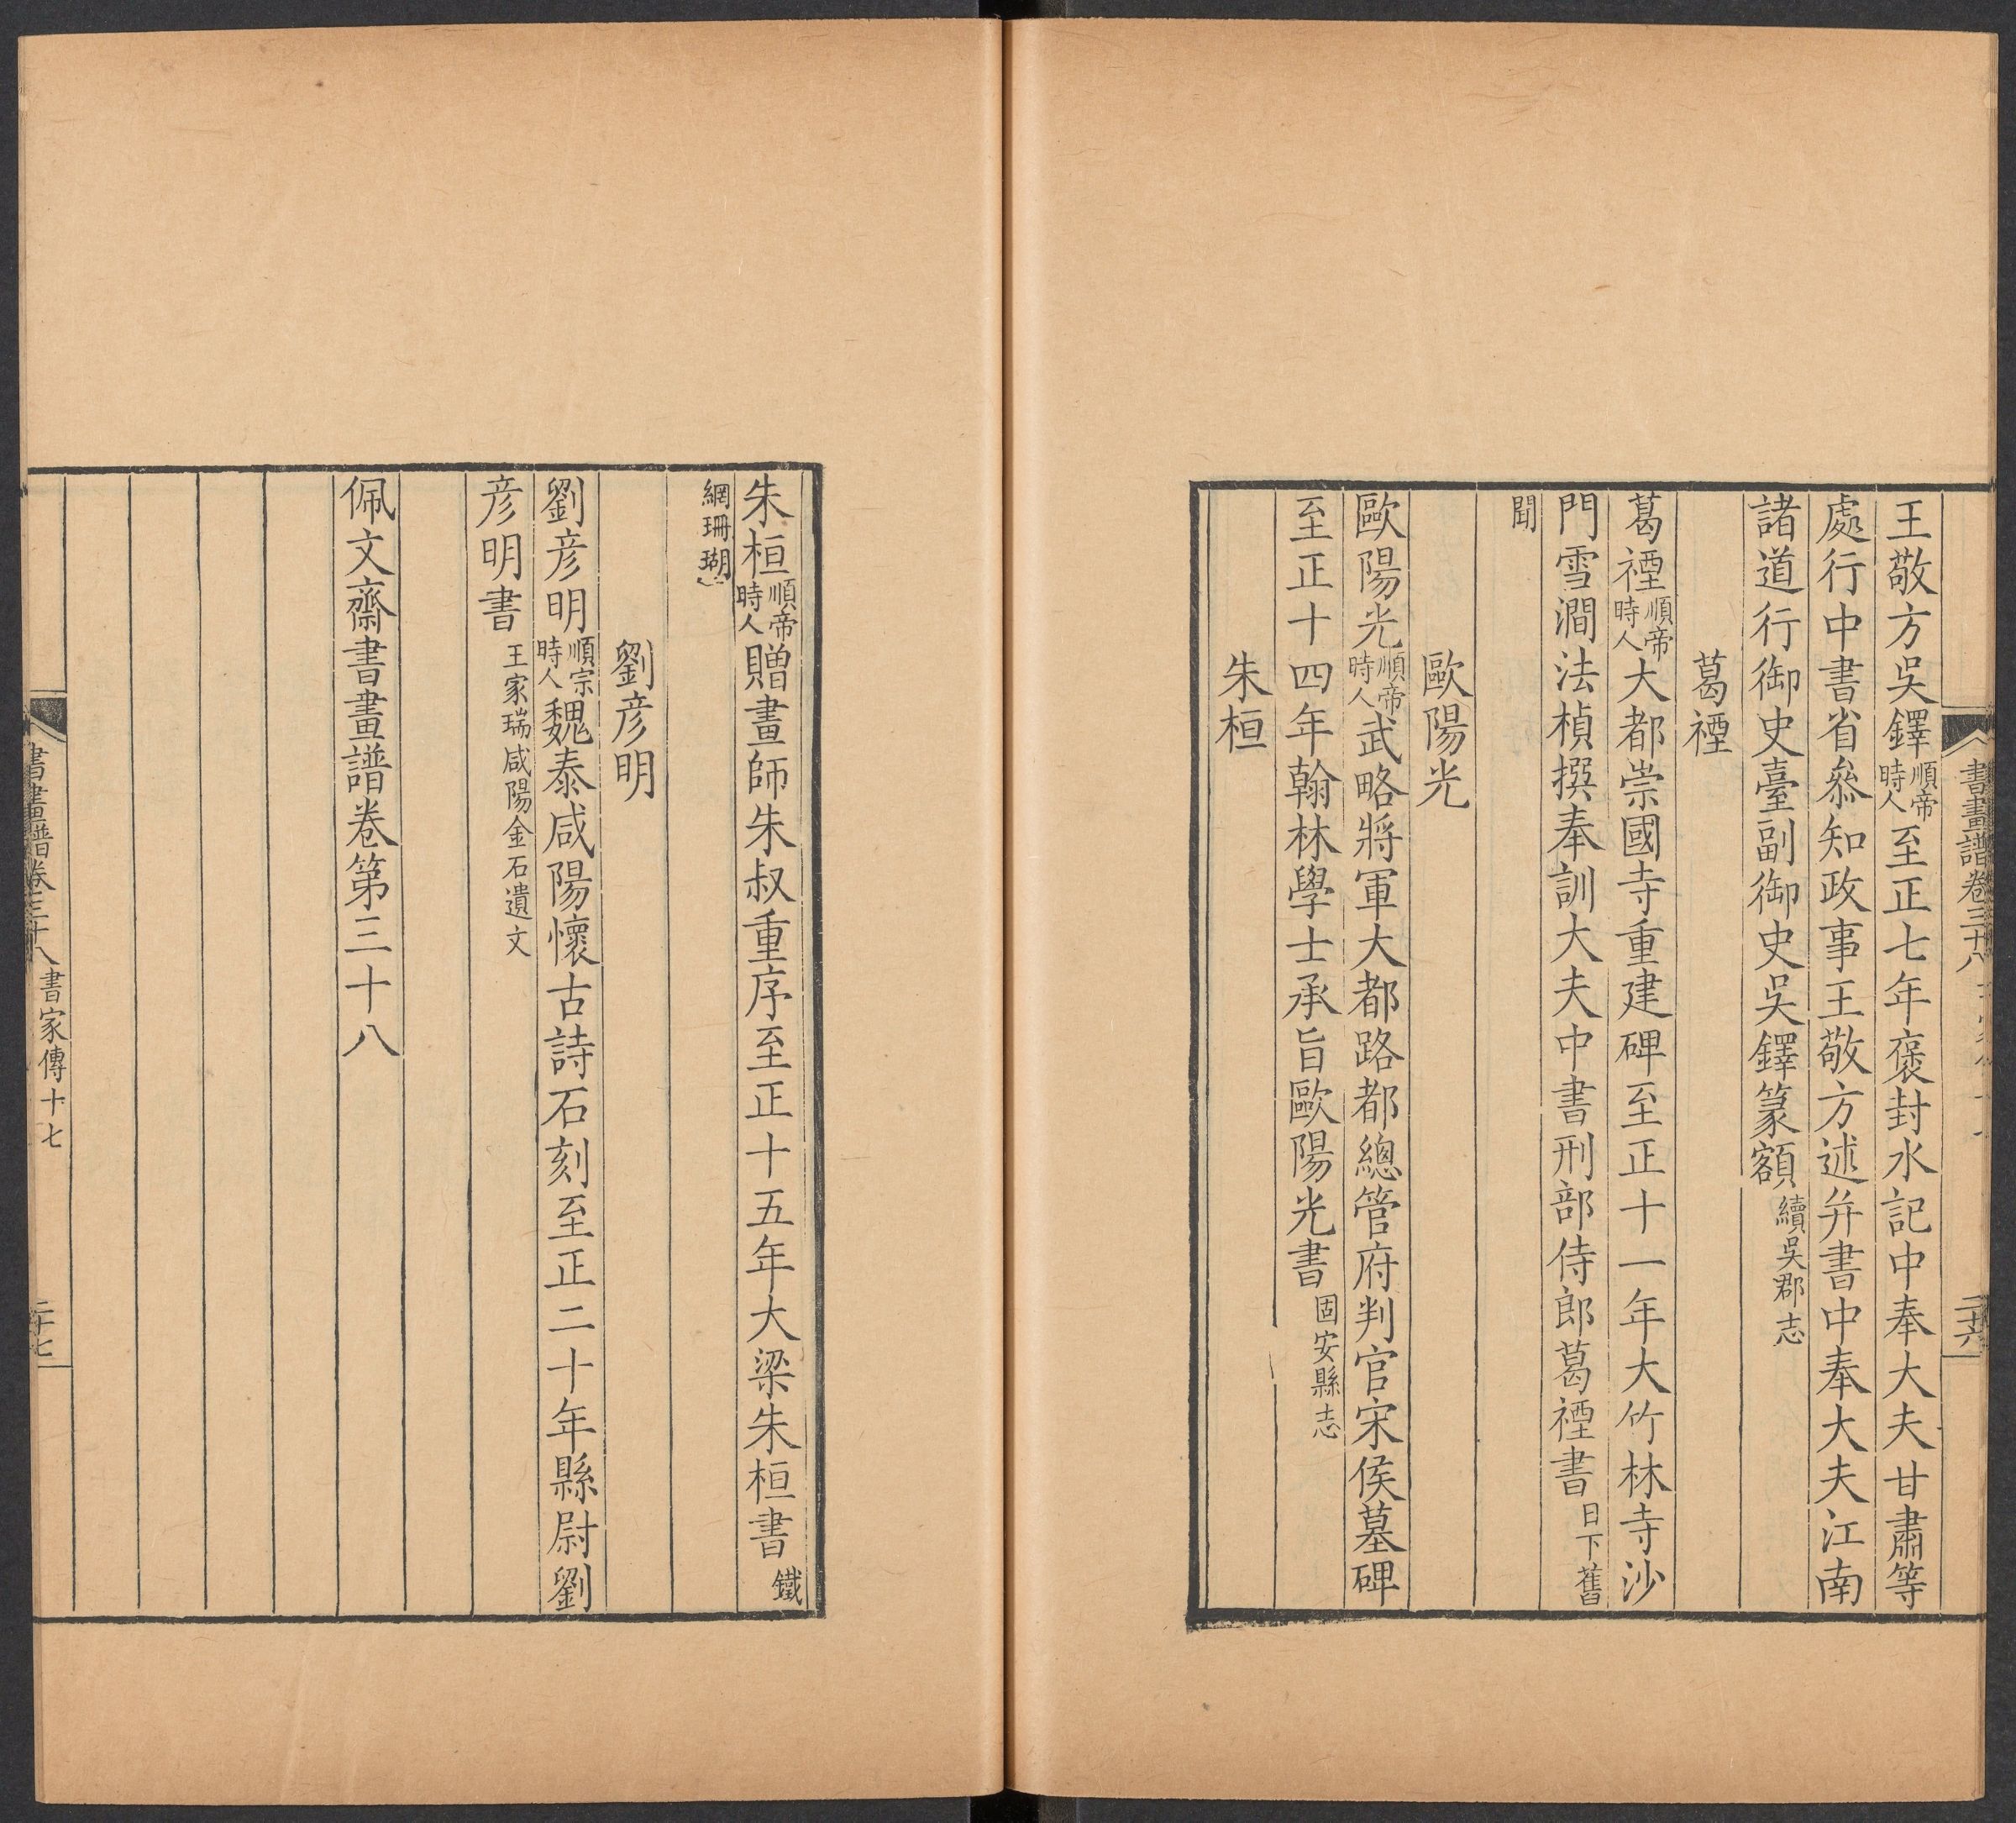 王敬方吳鐸順帝時人至正七年褒封水記中奉大夫甘肅等
處行中書省叅知政事王敬方述并書中奉大夫江南
諸道行御史臺副御史吳鐸篆額續吳郡志
葛禋
葛禋順帝時人大都崇國寺重建碑至正十一年大竹林寺沙
門雪澗法楨撰奉訓大夫中書刑部侍郎葛禋書日下舊
聞
歐陽光
歐陽光順帝時人武略將軍大都路都總管府判官宋侯墓碑
至正十四年翰林學士承旨歐陽光書固安縣志
朱桓
書畫譜卷三十八
二十六
朱桓順帝時人贈畫師朱叔重序至正十五年大梁朱桓書鐵
網珊瑚
劉彥明
劉彥明順宗時人魏泰咸陽懷古詩石刻至正二十年縣尉劉
彥明書王家瑞咸陽金石遺文
佩文齋書畫譜卷第三十八
書畫譜卷三十八 書家傳十七
二十七